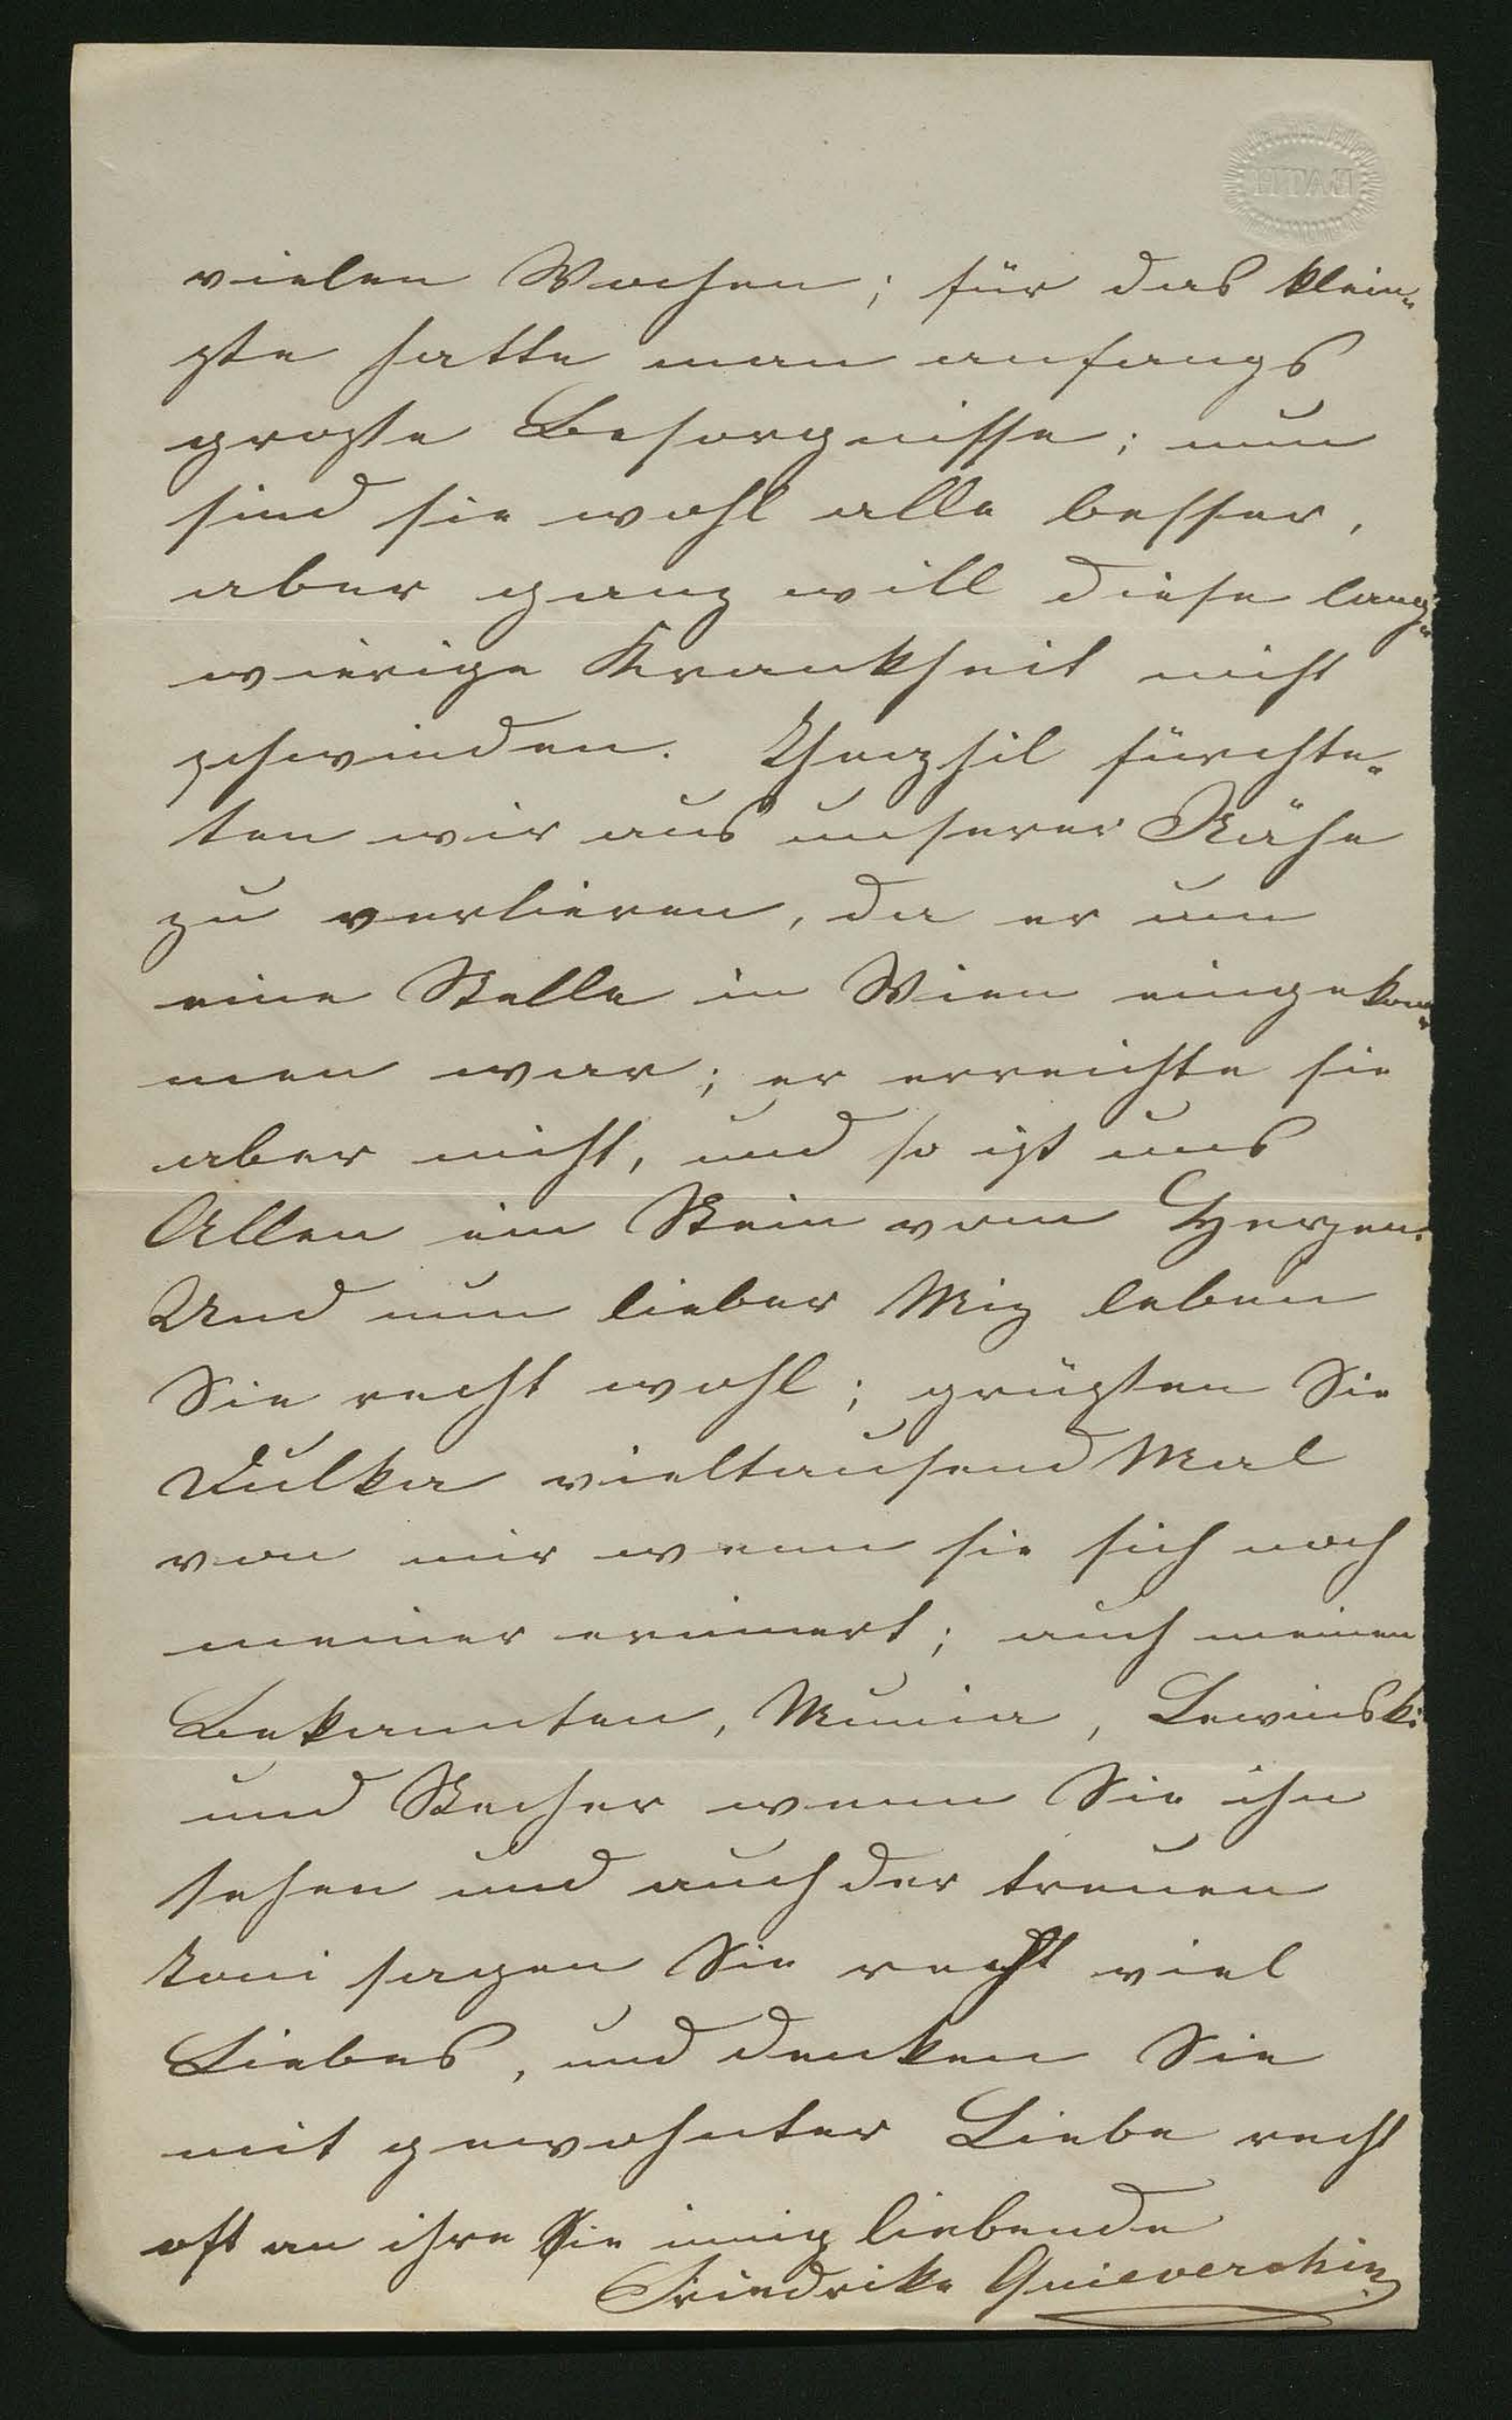 BATH
vielen Wochen; für das klein-
ste hatte man anfangs
große Besorgnisse; nun
sind sie wohl alle besser,
aber ganz will diese lang-
wierige Krankheit nicht
schwinden. fürchte-
ten wir aus unserer Nähe
zu verlieren, da er um
eine Stelle in Wien eingekom-
men war; er erreichte sie
aber nicht, und so ist uns
Allen ein Stein vom Herzen.
Und nun lieber Miz leben
Sie recht wohl; grüßen Sie
Dulka vieltausend Mal
von mir wenn sie sich noch
meiner erinnert; auch meinen
Bekannten, Munia, Lewinski
und Stecher wenn Sie ihn
sehen und auch der treuen
Toni sagen Sie recht viel
Liebes, und denken Sie
mit gewohnter Liebe recht
oft an ihre Sie innig liebende
Friedrike